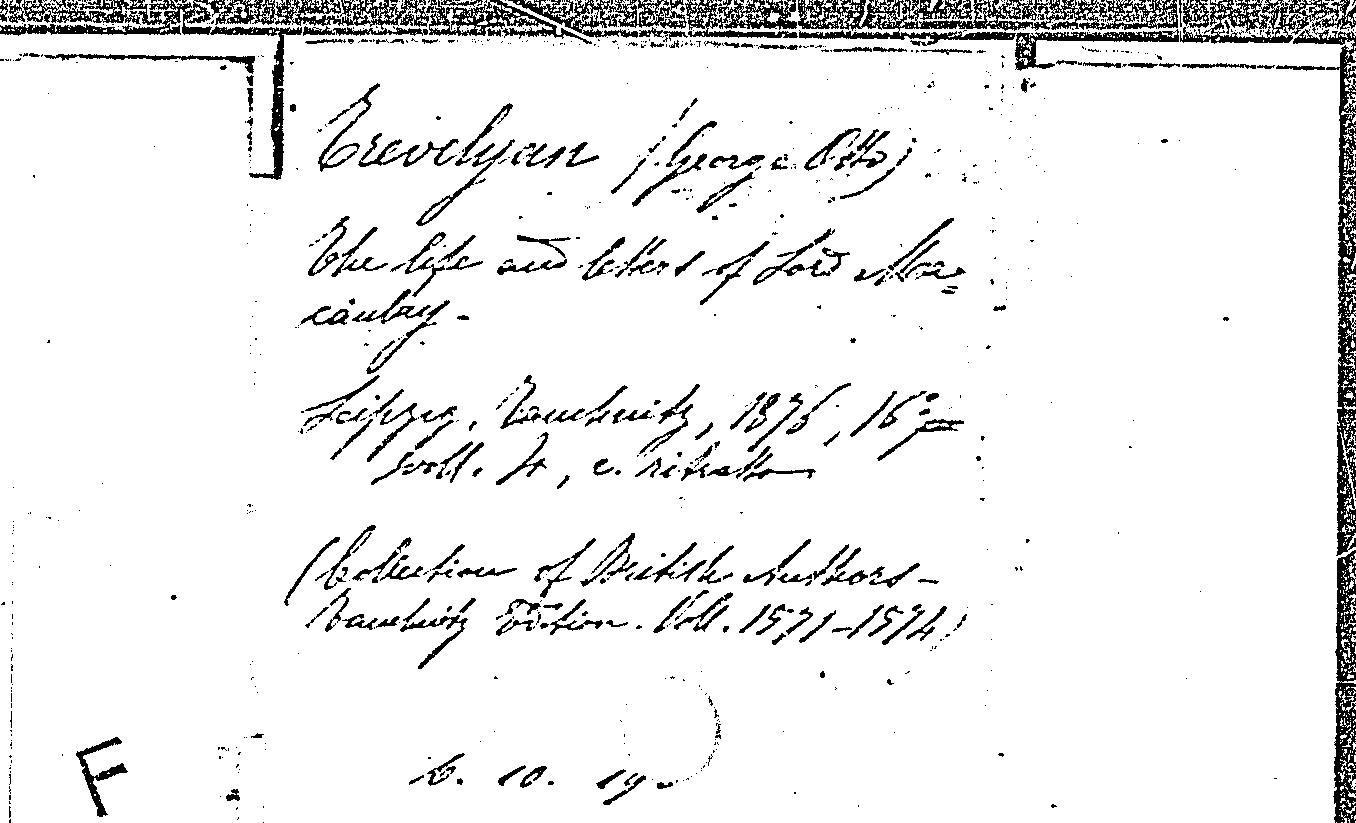 Trevelyan (George Otto)
The life and letters of Lord Ma=
caulay.
Leipzig, Tauchnitz, 1876, 16°,
voll. 4, c. ritratto
(Collection of British Authors -
Tauchnitz Edition. Voll. 1571-1574)
6. 10. 19.
F